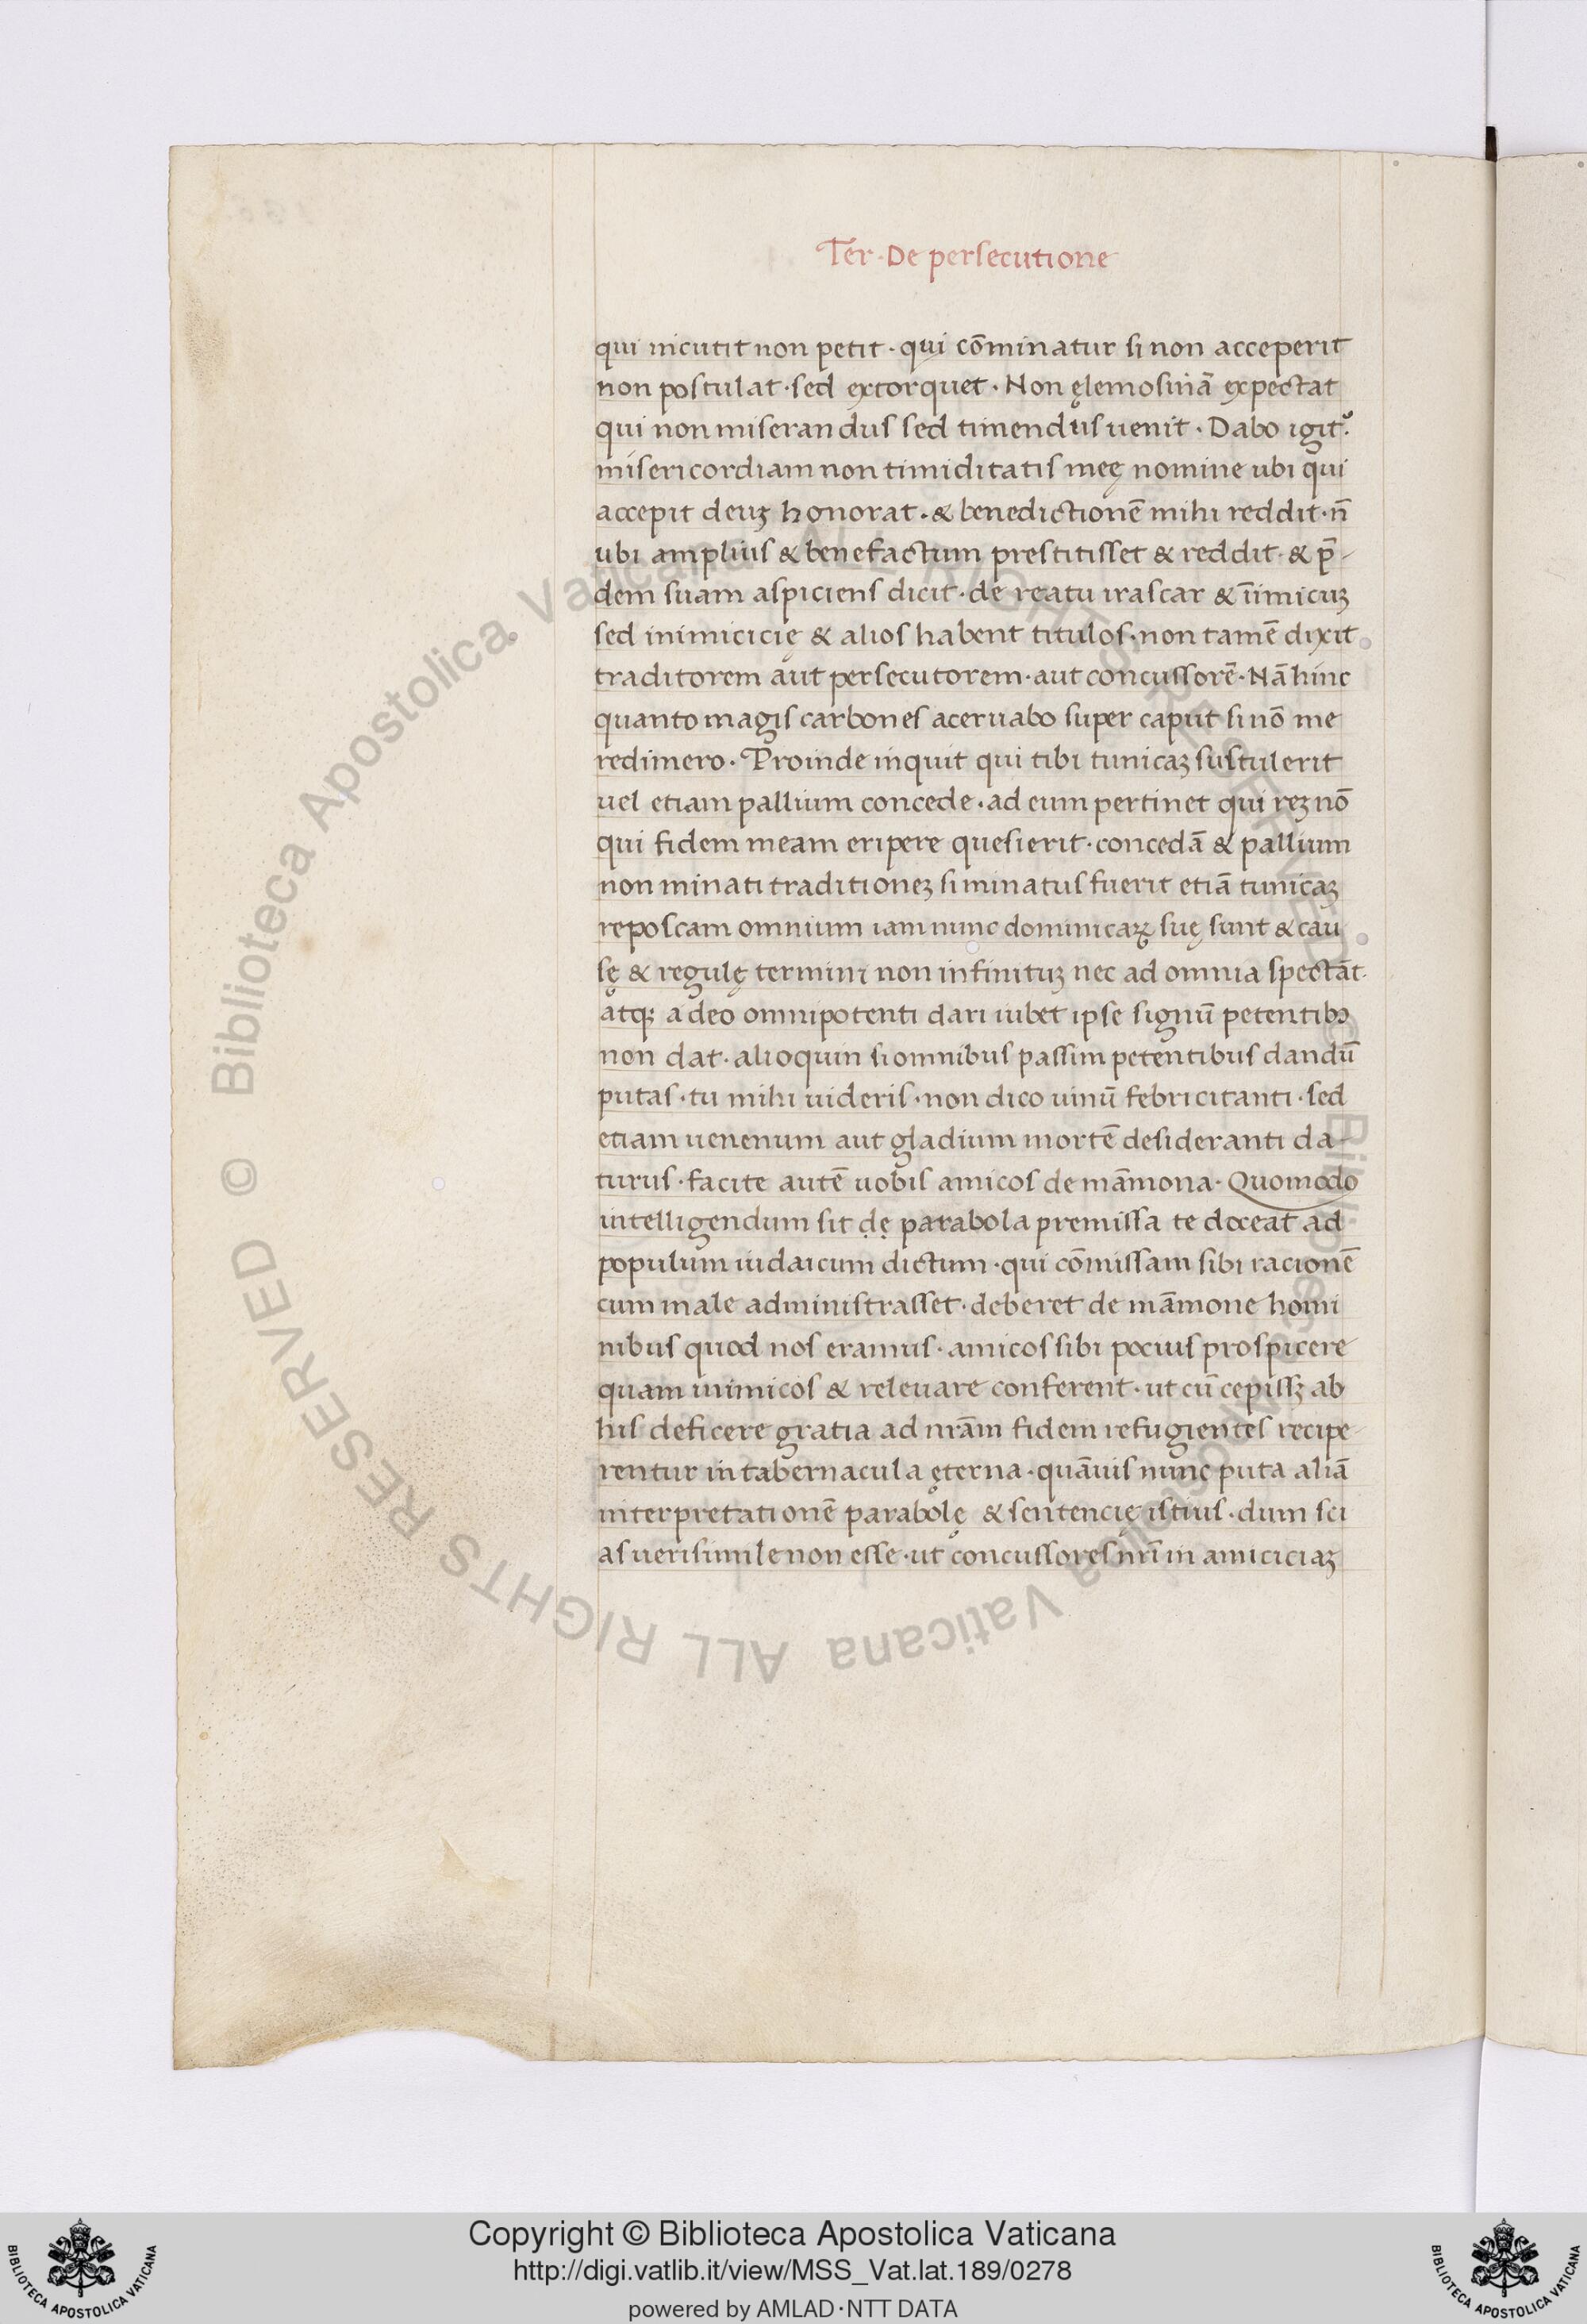 Ter · De persecutione
qui incutit non petit · qui cōminatur si non acceperit
non postulat · sed extorquet · Non ęlemosinā expectat
qui non miserandus sed timendus uenit · Dabo igit᷑
misericordiam non timiditatis meę nomine ubi qui
accepit deuꝫ honorat · & benedictionē mihi reddit · n̄
ubi amplius & benefactum prestitisset & reddit · & p̄-
dem suam aspiciens dicit · de reatu irascar & īimicuꝫ
sed inimicicię & alios habent titulos · non tamē dixit
traditorem aut persecutorem · aut concussorē · Nā hinc
quanto magis carbones aceruabo super caput si nō me
redimero · Proinde inquit qui tibi tunicaꝫ sustulerit
uel etiam pallium concede · ad eum pertinet qui reꝫ nō
qui fidem meam eripere quesierit · concedā & pallium
non minati traditioneꝫ si minatus fuerit etiā tunicaꝫ
reposcam omnium iam nunc dominicaꝝ suę sunt & cau
sę & regulę termini non infinituꝫ nec ad omnia spectāt ·
atqꝫ adeo omnipotenti dari iubet ipse signū petentibꝰ
non dat · alioquin si omnibus passim petentibus dandū
putas · tu mihi uideris · non dico uinū febricitanti · sed
etiam uenenum aut gladium mortē desideranti da-
turus · facite autē uobis amicos de māmona · Quomodo
intelligendum sit ḍẹ parabola premissa te doceat ad
populum iudaicum dictum · qui cōmissam sibi racionē
cum male administrasset · deberet de māmone homi
nibus quod nos eramus · amicos sibi pocius prospicere
quam inimicos & releuare conferent · ut cū cepissꝫ ab
his deficere gratia ad nr̄am fidem refugientes recipe-
rentur in tabernacula ęterna · quāuis nunc puta aliā
interpretationē parabolę & sentencię istius · dum sci
as uerisimile non esse · ut concussores nr̄i in amiciciaꝫ
Biblioteca Apostolica Vaticana ALL RIGHTS RESERVED ©
Biblioteca Apostolica Vaticana ALL RIGHTS RESERVED ©
BIBLIOTECA APOSTOLICA VATICANA
Copyright © Biblioteca Apostolica Vaticana
http://digi.vatlib.it/view/MSS_Vat.lat.189/0278
powered by AMLAD·NTT DATA
BIBLIOTECA APOSTOLICA VATICANA